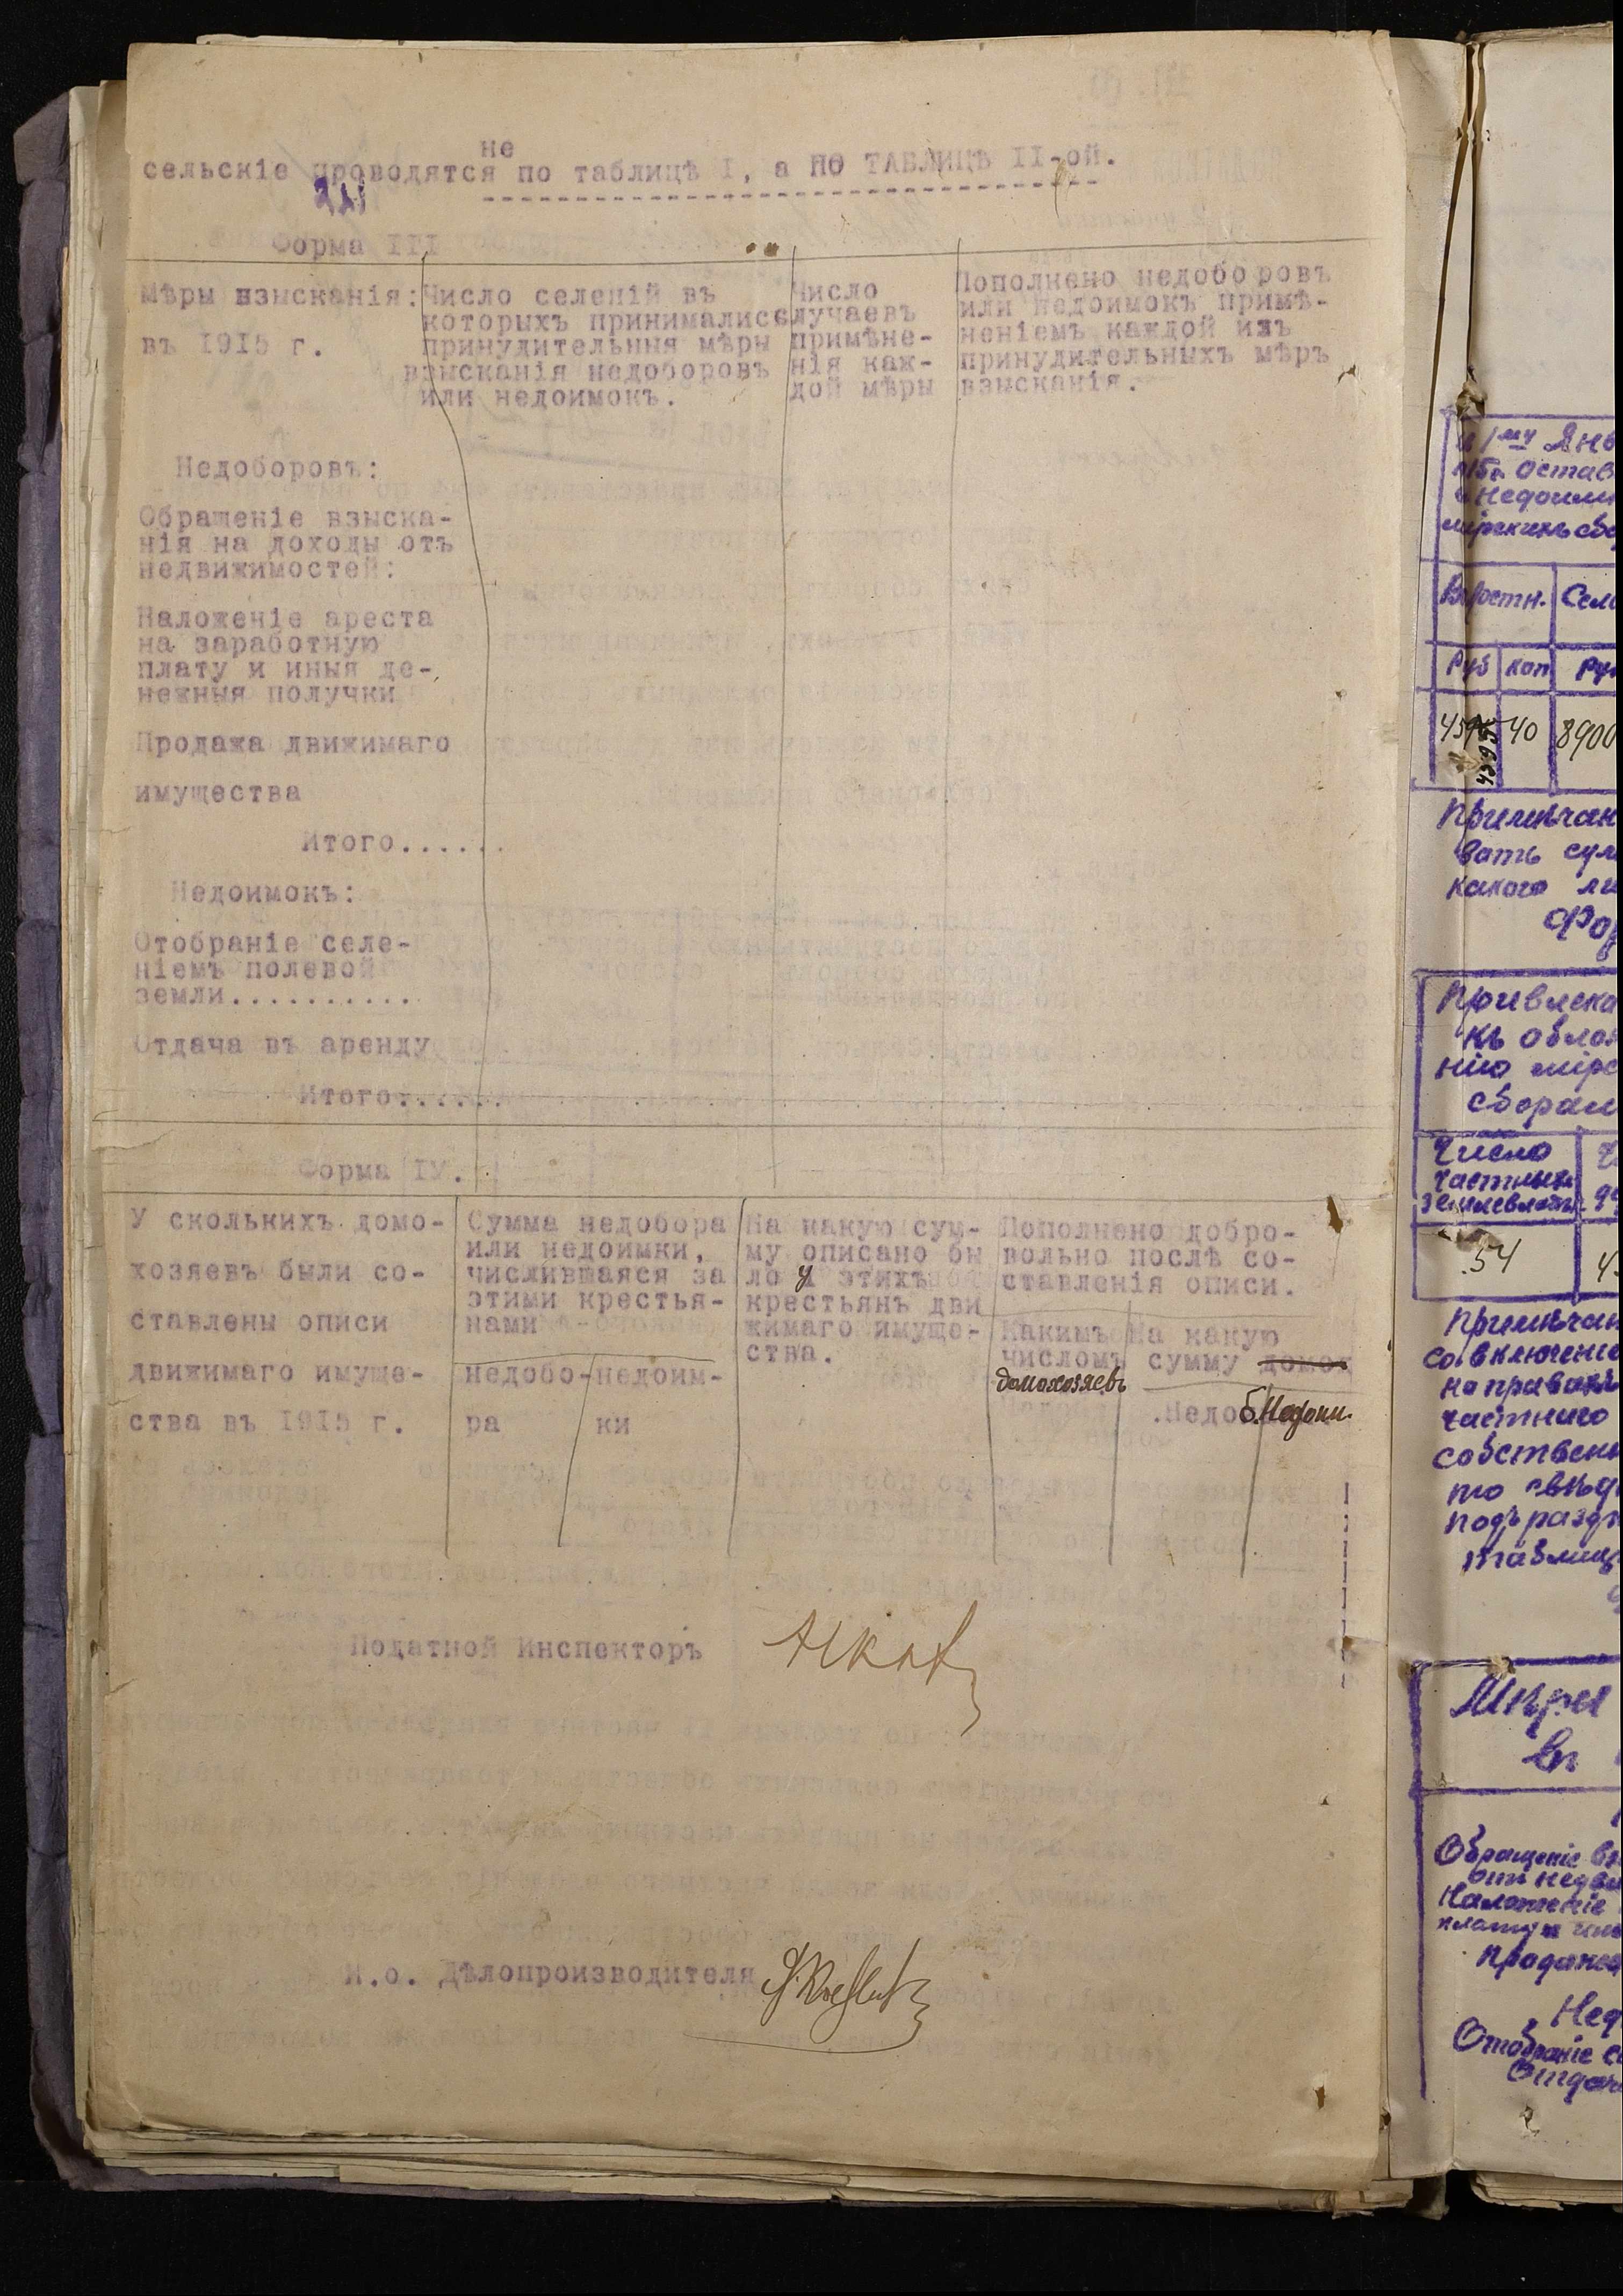 не
сельскіе проводятся по таблицѣ I, а ПО ТАБЛИЦѢ II-ой.
Форма III
Мѣры взысканія:
въ 1915 г.
Число селеній въ
которыхъ принималисс
принудительныя мѣры
взысканія недоборовъ
или недоимокъ.
Число
случаевъ
примѣне-
нія каж-
дой мѣры
Пополнено недоборовъ
или недоимокъ примѣ-
неніемъ каждой изъ
принудительныхъ мѣръ
взысканія.
Недоборовъ:
Обращеніе взыска-
нія на доходы отъ
недвижимостей:
Наложеніе ареста
на заработную
плату и иныя де-
нежныя получки
Продажа движимаго
имущества
Итого......
Недоимокъ:
Отобраніе селе-
ніемъ полевой
земли...........
Отдача въ аренду
Итого......
Форма IУ.
У сколькихъ домо-
хозяевъ были со-
ставлены описи
движимаго имуще-
ства въ 1915 г.
Сумма недобора
или недоимки,
числившаяся за
этими крестья-
нами
недобо-
ра
недоим-
ки
На какую сум-
му описано бы
ло у этихъ
крестьянъ дви
жимаго имуще-
ства.
Пополнено добро-
вольно послѣ со-
ставленія описи.
Какимъ
числомъ
домохозяевъ
На какую
сумму домох
Недоб. Недоим.
Податной Инспекторъ
И.о. Дѣлопроизводителя
къ 1му Янв
Недоимк
мірскихъ сбо
Волостн. Сель
Руб коп Ру
40 8900
4595
Примѣчан
вать сум
какого ли
Фор
Привлека
къ облож
нію мірс
сборам
Число
частныхъ
землевлад.
54
Примѣчан
со включеніе
на правахъ
частнаго
собственн
то свѣд
подъ разд
таблиц
Мѣры
Въ
Обращеніе вз
отъ недви
Наложеніе
плату и ины
Продажа
Нед
Отобраніе с
Отдач